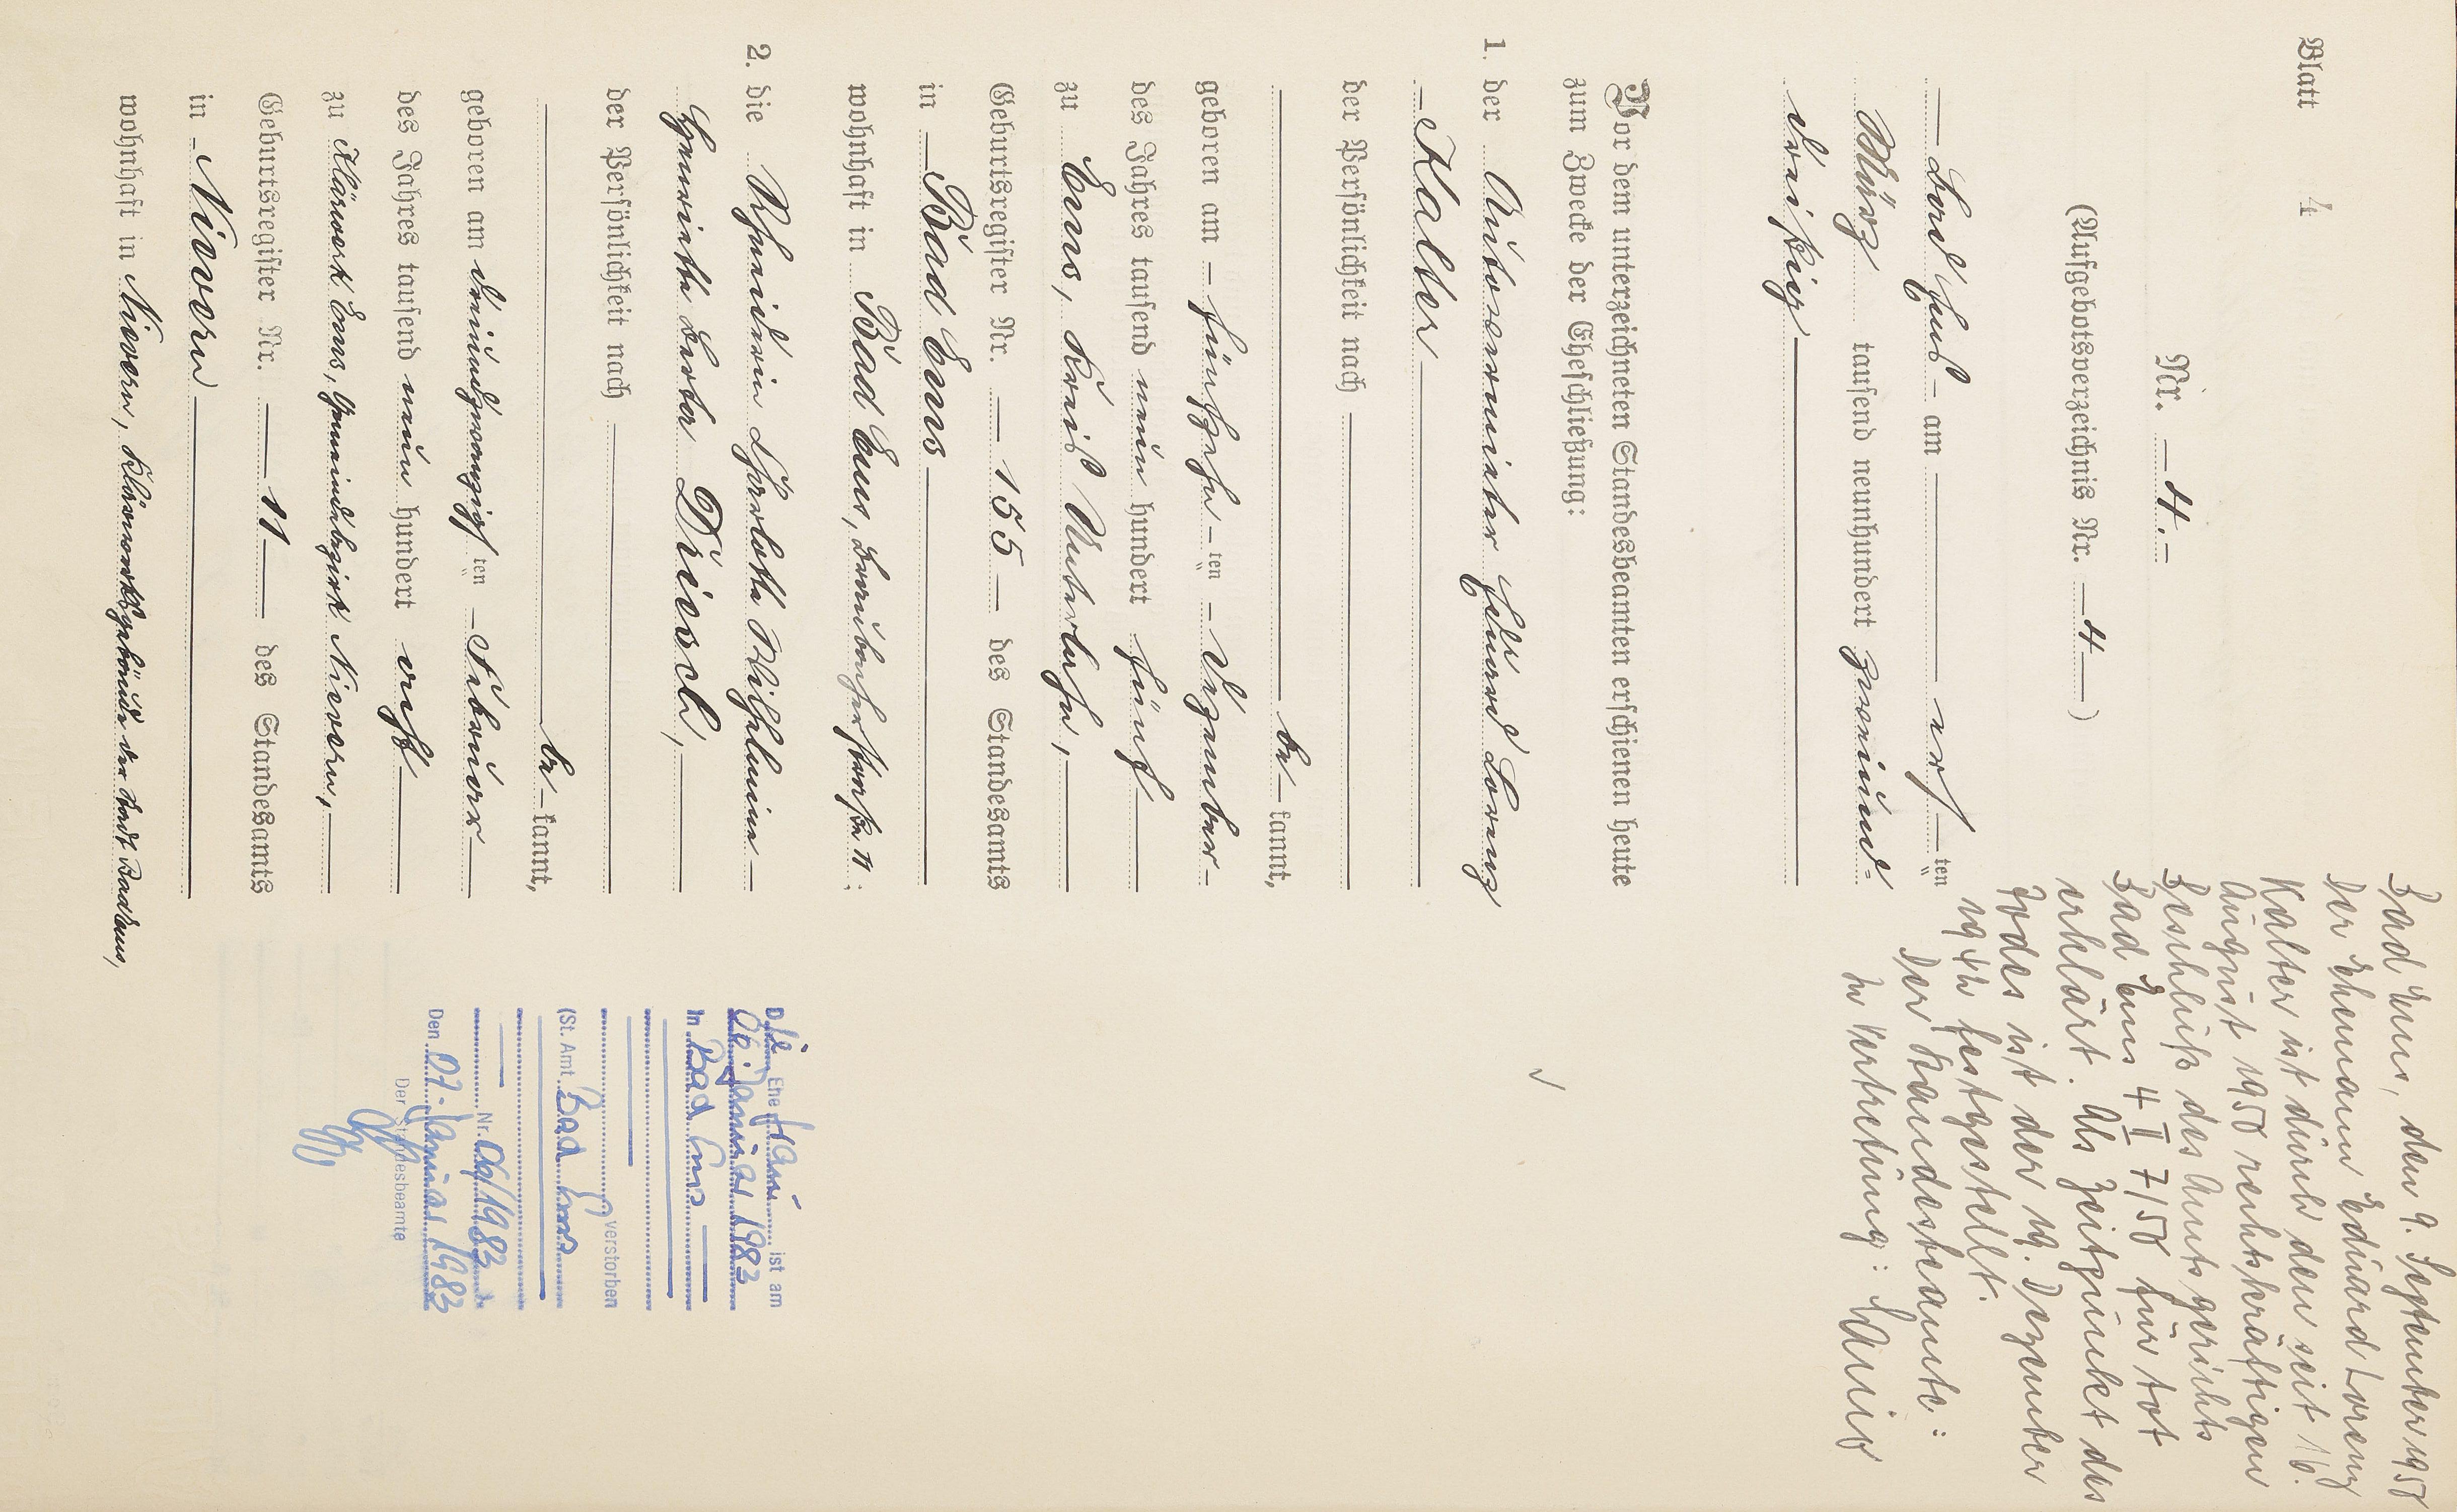 Blatt 4
Nr. 4.
(Aufgebotsverzeichnis Nr. 4)
am elften
März tausend neunhundert zweiund-
dreißig
Vor dem unterzeichneten Standesbeamten erschienen heute
zum Zwecke der Eheschließung:
1. der Automonteur Eduard Lorenz
Kalter
der Persönlichkeit nach
be kannt,
geboren am fünfzehnten Dezember
des Jahres tausend neun hundert fünf
zu Ems, Kreis Unterlahn,
Geburtsregister Nr. 155 des Standesamts
in Bad Ems
wohnhaft in Bad Ems, straße 11;
2. die Charlotte Wilhelmine
Henriette Driesch,
der Persönlichkeit nach
be kannt,
geboren am dreiundzwanzigsten Februar
des Jahres tausend neun hundert elf
zu Klärwerk Ems, Gemeindebezirk Nievern,
Geburtsregister Nr. 11 des Standesamts
in Nievern
wohnhaft in Nievern, Klärwerksgebäude der Stadt Bad Ems,
Bad Ems, den 9. September 1950
Der Ehemann Eduard Lorenz
Kalter ist durch den seit 16.
August 1950 rechtskräftigen
Beschluß des Amtsgerichts
Bad Ems 4 II 7/50 für tot
erklärt. Als Zeitpunkt des
Todes ist der 19. Dezember
festgestellt.
Der Standesbeamte:
In Vertretung:
Die Ehefrau ist am
06. Januar 1983
in Bad Ems
verstorben
(St. Amt Bad Ems
Nr. 06/1983)
Den 07. Januar 1983
Der Standesbeamte